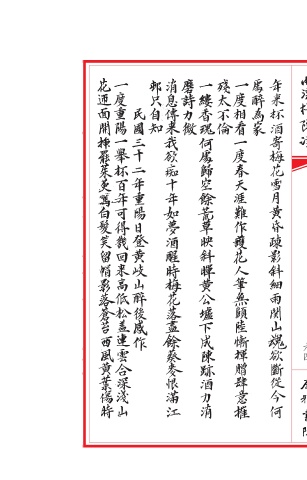 年来杯酒寄梅花雪月黄昏疎影斜細雨關山魂欲斷從今何
處醉為家
一度相看一度春天涯難作護花人筆無顧陸慚揮贈肆意摧
殘太不倫
一縷香魂何處歸空餘荒草映斜暉黄公壚下成陳跡酒力消
磨詩力微
消息傳来我欲痴十年如夢酒醒時梅花落盡餘葵麥恨滿江
邨只自知
民國三十二年重陽日登黄岐山醉後感作
一度重陽一舉杯百年可得幾回来高低松蓋連雲合深淺山
花迎面開揮罷茱萸驚白髮笑留帽影落蒼苔西風黄葉傷時